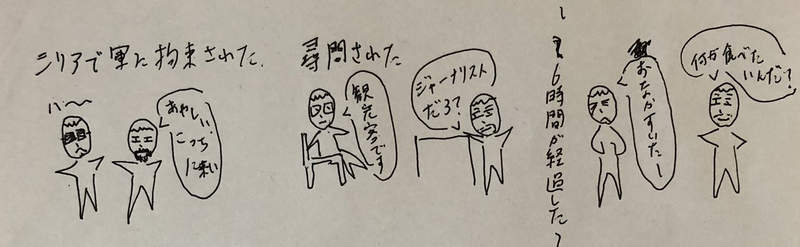 シリアで軍に拘束された.
え〜
あやしい.
こっち
に来い
尋問された
観光客です
ジャーナリスト
だろ?
〜6時間が経過した〜
おなかすいたー
何が食べた
いんだ?